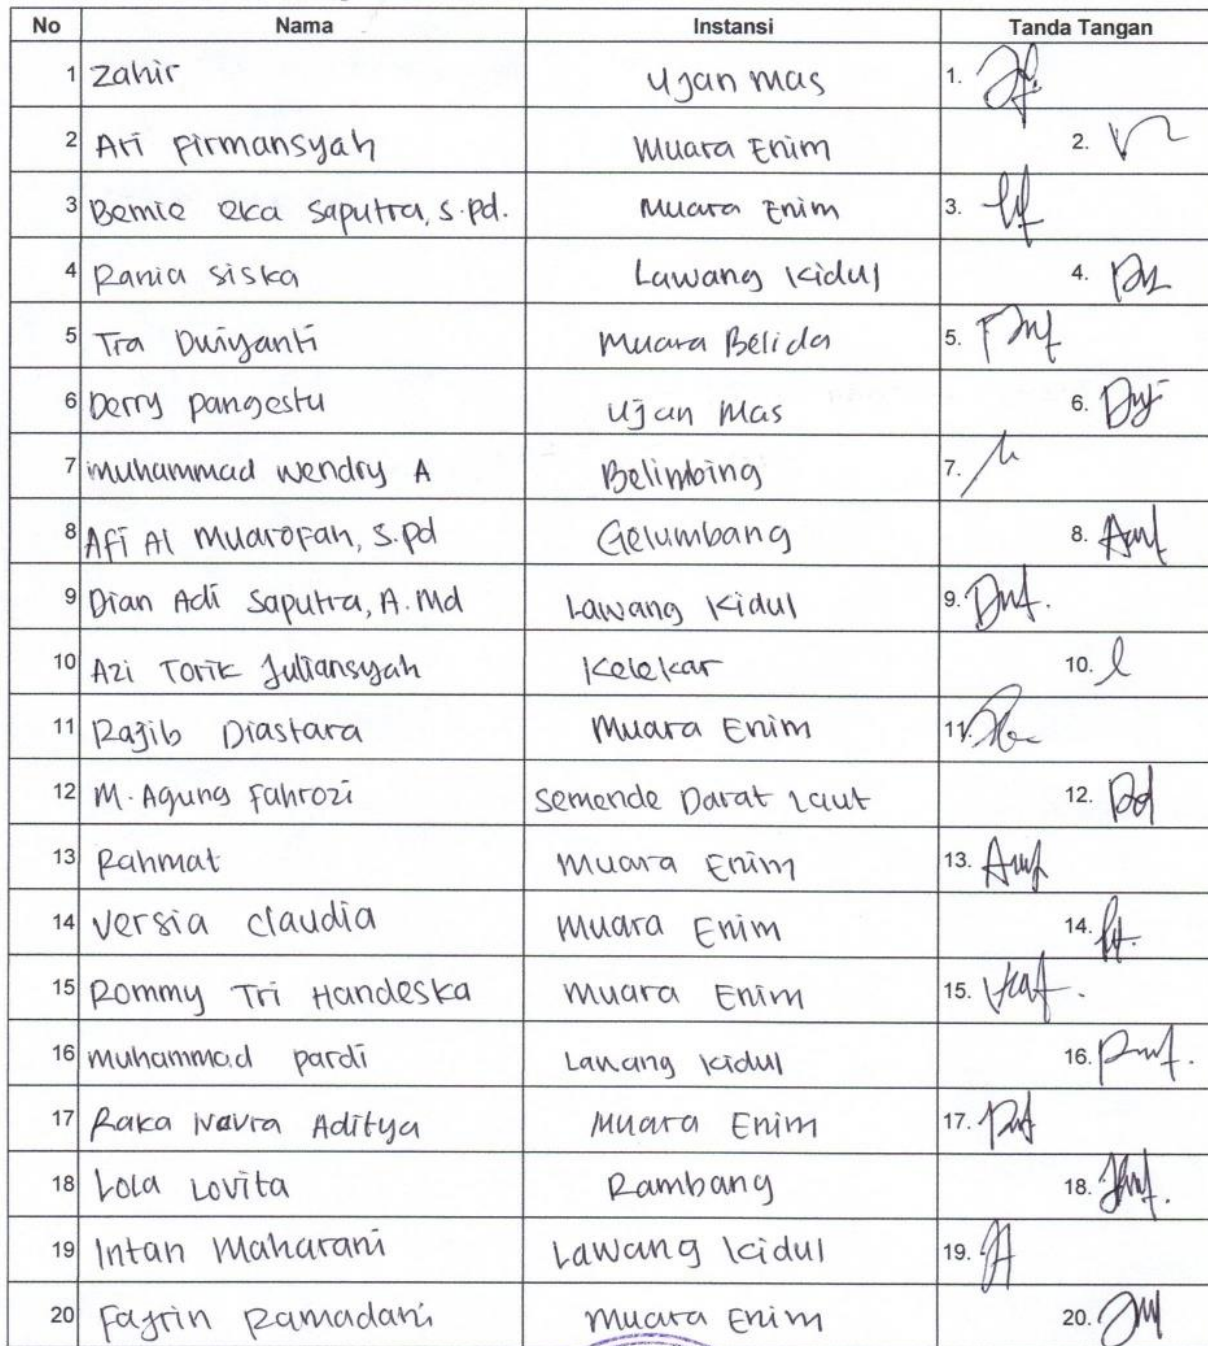 No Nama Instansi Tanda Tangan
1 Zahir Ujan Mas 1.
2 Ari Firmansyah Muara Enim 2.
3 Bemie eka Saputra, S.Pd. Muara Enim 3.
4 Rania Siska Lawang Kidul 4.
5 Tra Dwiyanti Muara Belida 5.
6 Derry Pangestu Ujan Mas 6.
7 Muhammad Wendry A Belimbing 7.
8 Afi Al Muarofah, S.Pd Gelumbang 8.
9 Dian Adi Saputra, A.Md Lawang Kidul 9.
10 Azi Torik Juliansyah Kelekar 10.
11 Rajib Diastara Muara Enim 11.
12 M. Agung Fahrozi Semende Darat Laut 12.
13 Rahmat Muara Enim 13.
14 Versia Claudia Muara Enim 14.
15 Rommy Tri Handeska Muara Enim 15.
16 Muhammad Pardi Lawang Kidul 16.
17 Raka Navra Aditya Muara Enim 17.
18 Lola Lovita Rambang 18.
19 Intan Maharani Lawang Kidul 19.
20 Fajrin Ramadani Muara Enim 20.